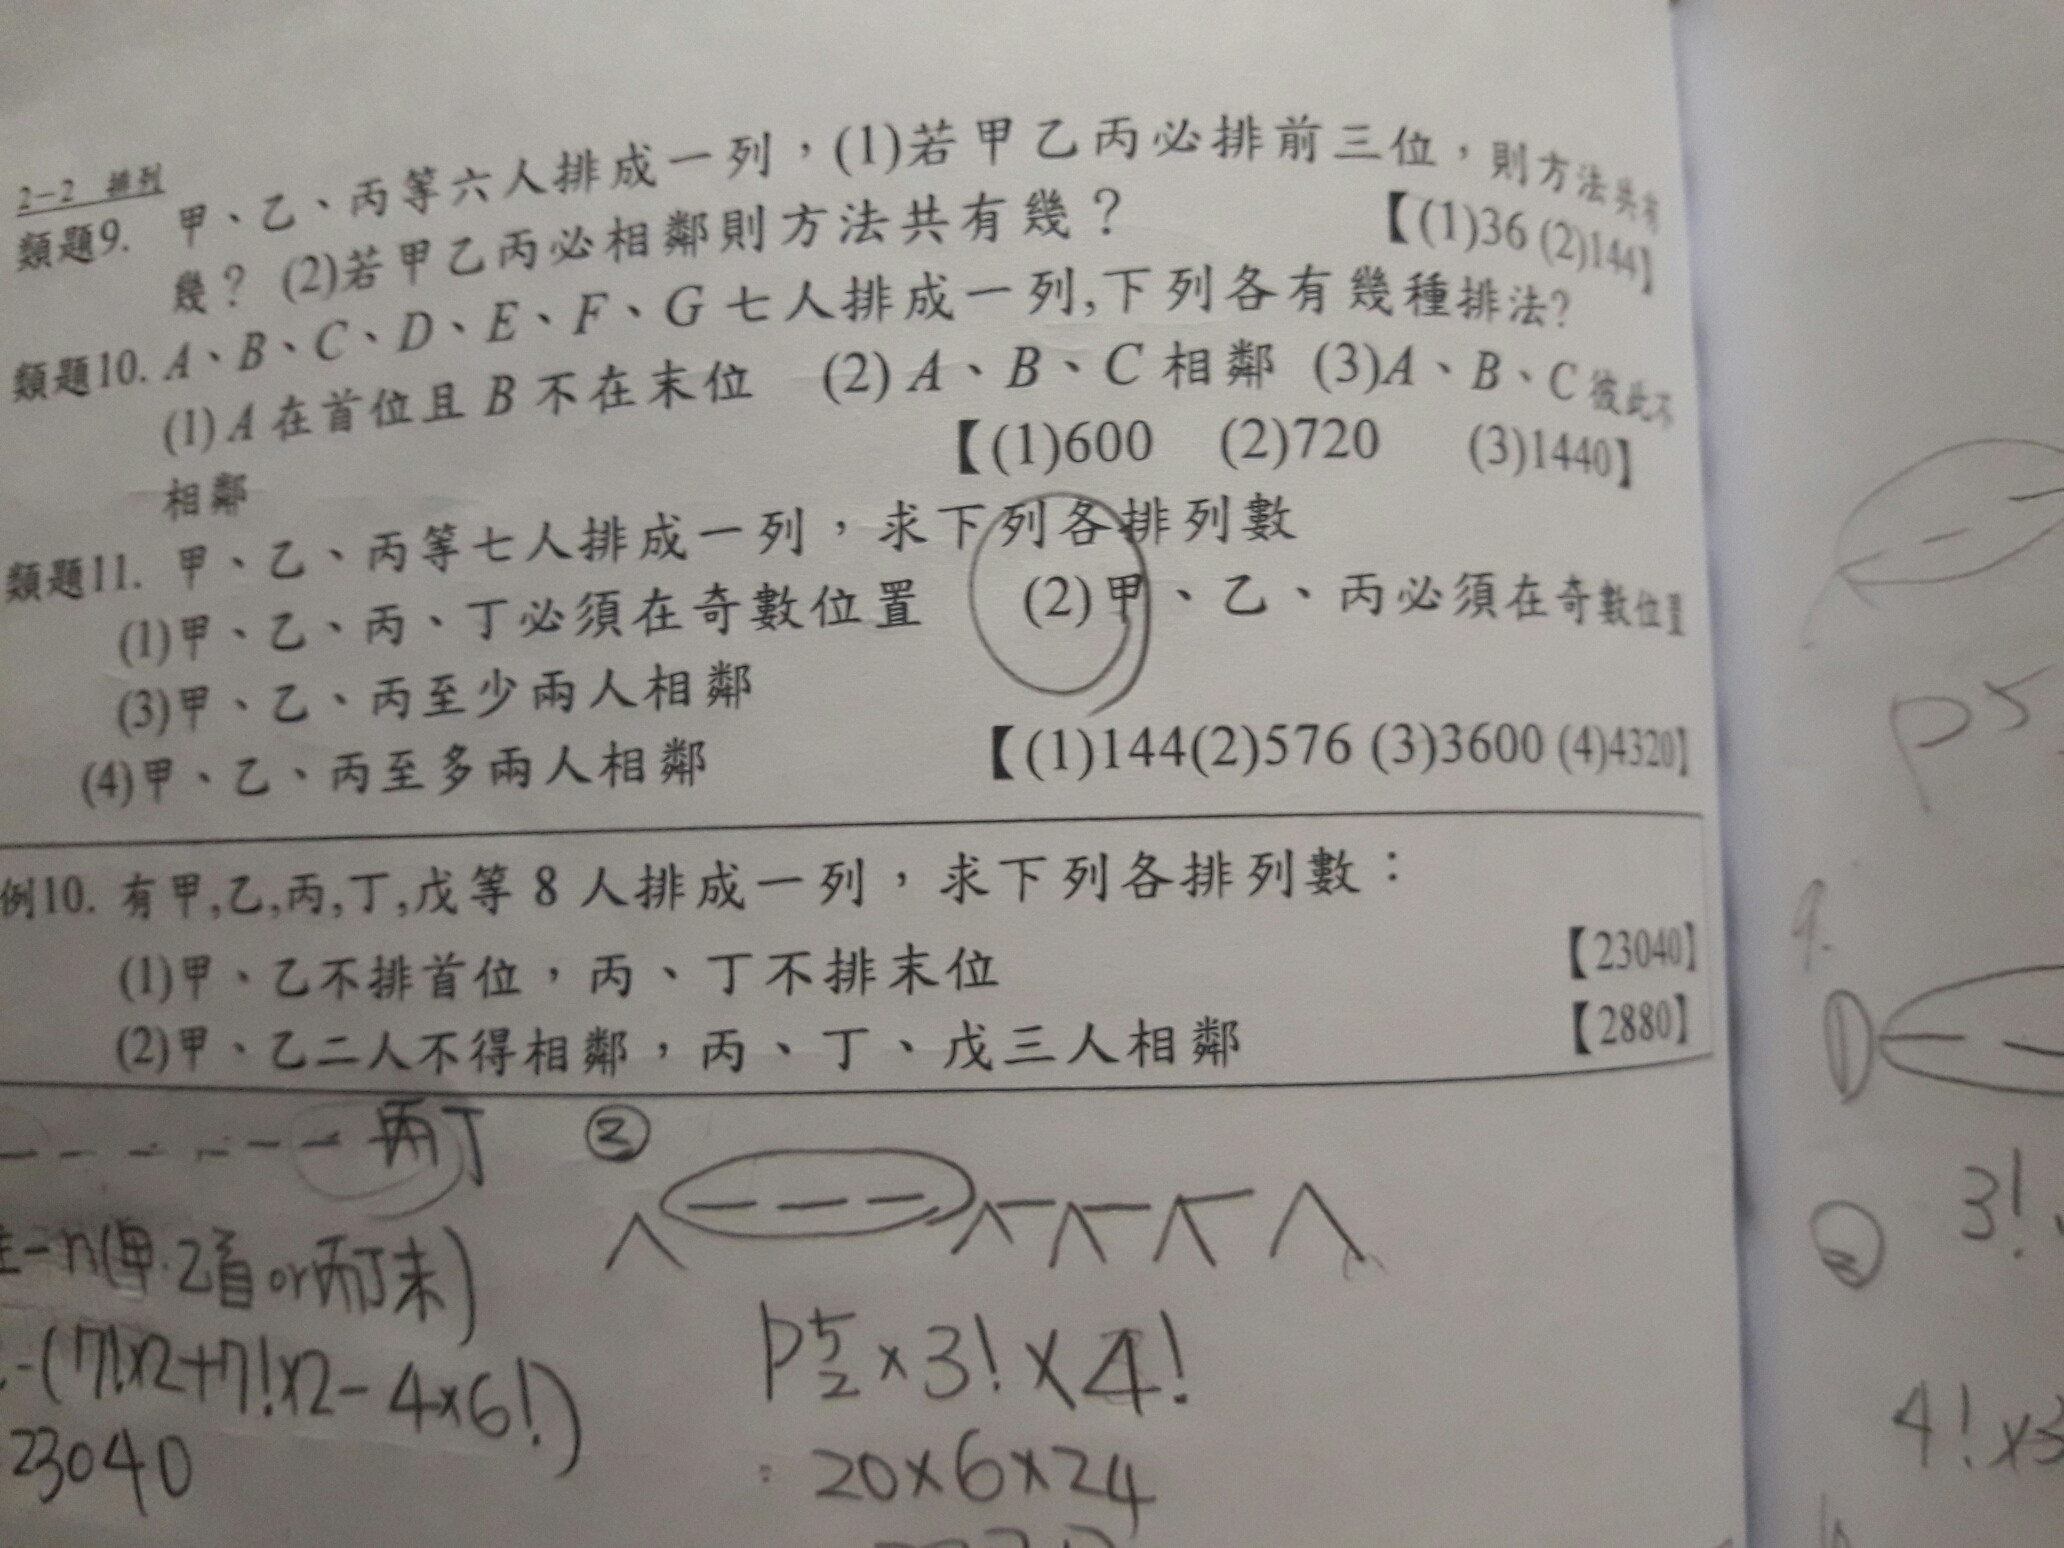 2-2 排列
類題9. 甲、乙、丙等六人排成一列，(1)若甲乙丙必排前三位，則方法共有
幾？ (2)若甲乙丙必相鄰則方法共有幾？ 【(1)36 (2)144】
類題10. A、B、C、D、E、F、G 七人排成一列,下列各有幾種排法?
(1) A 在首位且 B 不在末位 (2) A、B、C 相鄰 (3)A、B、C 彼此不
相鄰 【(1)600 (2)720 (3)1440】
類題11. 甲、乙、丙等七人排成一列，求下列各排列數
(1)甲、乙、丙、丁必須在奇數位置 (2)甲、乙、丙必須在奇數位置
(3)甲、乙、丙至少兩人相鄰
(4)甲、乙、丙至多兩人相鄰 【(1)144(2)576 (3)3600 (4)4320】
例10. 有甲,乙,丙,丁,戊等 8 人排成一列，求下列各排列數：
(1)甲、乙不排首位，丙、丁不排末位 【23040】
(2)甲、乙二人不得相鄰，丙、丁、戊三人相鄰 【2880】
丙丁
-n(甲.乙首or丙丁末)
-(7!x2+7!x2-4x6!)
23040
②
P5 2 x 3! x 4!
20x6x24
P5
9.
①
②
3!
4! x3